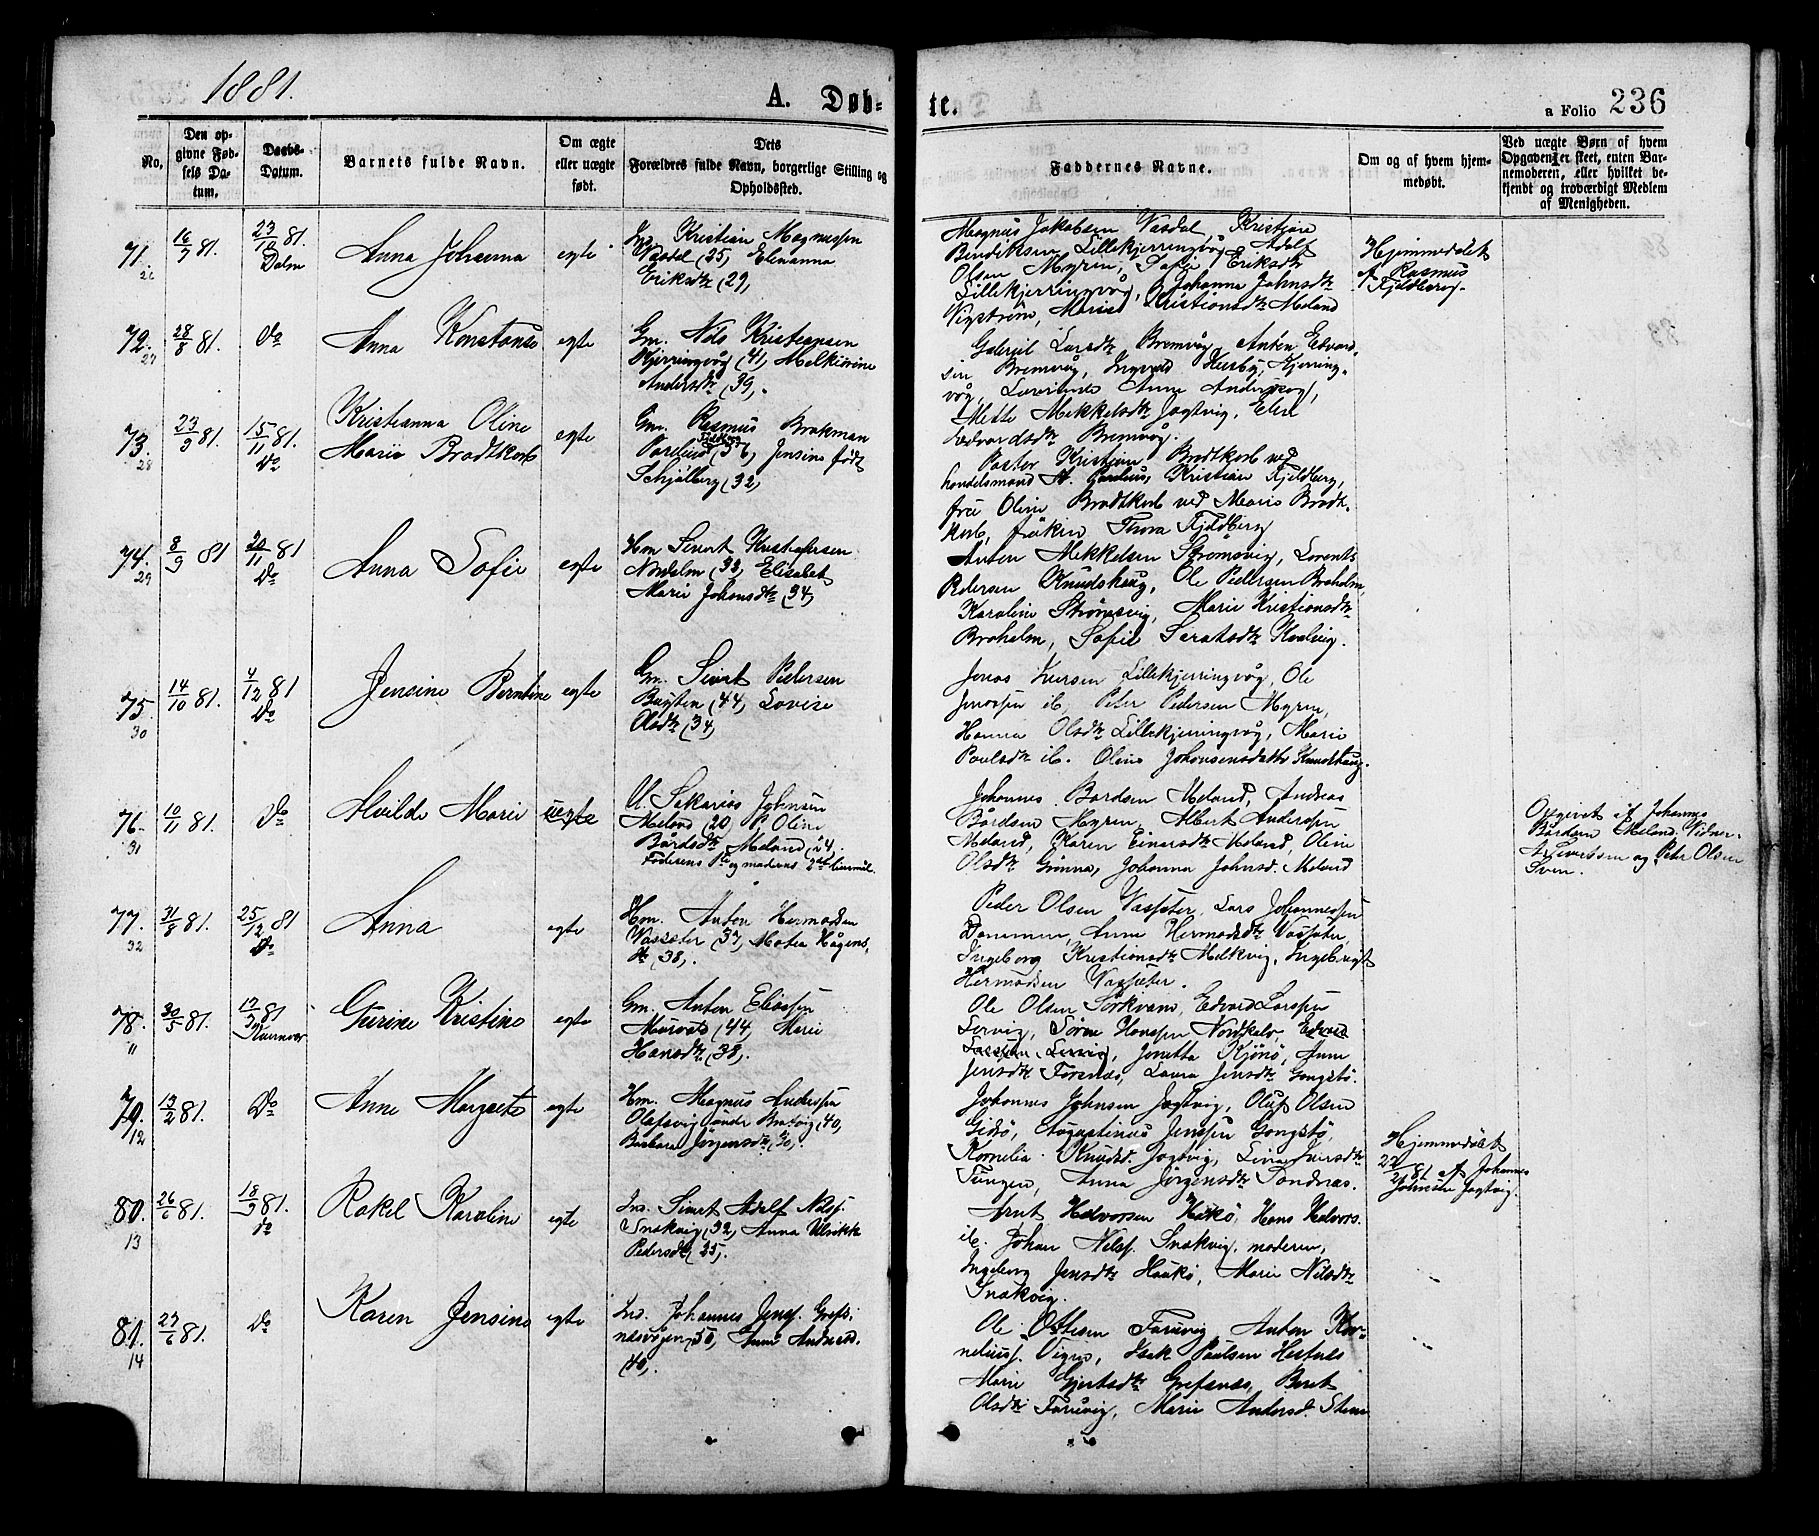 1881.
A. Døb-
te.
a Folio 236
No.
Den op-
givne Fød-
sels Da-
tum.
Daabs-
Datum.
Barnets fulde Navn.
Om ægte
eller uægte
født.
Dets
Forældres fulde Navn, borgerlige Stilling og
Opholdssted.
Faddernes Navne.
Om og af hvem hjem-
medøbt.
Ved uægte Børn af hvem
Opgaven er skeet, enten Bar-
nemoderen, eller hvilket be-
kjendt og troværdigt Medlem
af Menigheden.
71.
26
16/7 81.
23/10 81.
Dolm
Anna Johanna
egte
Ins. Kristian Magnussen
Vasdal (25, Elenanna
Eriksdtr (29,
Magnus Jakobsen Vasdal, Kristian
Bendiksen Lillekjerringvåg, Adolf
Olsen Myren, Sofie Eriksdtr
Lillekjerringvåg, Johanna Johnsdtr
Vigstrøm, Marie Kristiansdtr Meland
Hjemmedøbt
af Rasmus
Fjeldberg.
72.
27
28/8 81.
Do
Anna Konstanse
egte
Gm. Nils Kristiansen
Kjerringvåg (41,
Andersdtr (39,.
Gabriel Larsdtr Bremvåg, Anton Edvard-
sen Bremvåg, Ingvald Husby, Kjerring-
våg, Anne Andersdtr,
Mette Mikkelsdtr Jøgtvig, Elen
Edvardsdtr Bremvåg.
73.
28
23/9 81.
15/11 81.
Do
Kristianna Oline
Marie Bradtkorb
egte
Gm. Rasmus Brokman
Parelius (36, Jensine født
Schjølberg (32,
Pastor Kristian Bradtkorb ved
handelsmand A. Parelius, Kristian Fjeldberg,
frue Oline Bradtkorb ved Marie Bradt-
korb, frøken Thora Fjeldberg
74.
29
8/9 81
20/11 81
Do
Anna Sofie
egte
Hm Sivert Kristofersen
Nordolm (33, Elisabet
Marie Johansdtr (34,
Anton Mikkelsen Strømsvig, Lorents
Pedersen Knudshaug, Ole Pedersen Broholm,
Karoline Strømsvig, Marie Kristiansdtr
Broholm, Sofie Kvalvig.
75.
30
14/10 81.
4/12 81
Do
Jensine Berntine
egte
Gm. Sivert Pedersen
Bugten (44, Lovise
Olsdtr (34,
Jonas Iversen Lillekjerringvåg, Ole
Jonassen ib, Peter Pedersen Myren,
Hanna Olsdtr Lillekjerringvåg, Marie
Paulsdtr ib. Oline Johansensdatter Knudshaug.
76.
31
10/11 81.
Do
Alvilde Marie
uegte
U. Sakarias Johnsen
Meland (20, P. Oline
Bårdsdtr Meland (24.
Faderens 1ste og moderens 2det leiermål.
Johannes Bårdsen Meland, Andreas
Bårdsen Myren, Albert Andersen
Meland, Karen Einersdtr Meland, Oline
Olsdtr Grønnø, Johanna Johnsd. Meland
Opgivet af Johannes
Bårdsen Meland. Vidner:
A. Sivertsen og Peter Olsen
Sven.
77.
32
31/8 81.
25/12 81
Do
Anna
egte
Hm. Anton Hermodsen
Vassæter (37, Matea Hågens-
dtr (38,.
Peder Olsen Vassæter, Lars Johannessen
Anne Hermodsdtr Vassæter,
Ingeborg Kristiansdtr Melkvig, Ingebrigt
Hermodsen Vassæter.
78.
11
30/5 81.
17/7 81
Gurine Kristine
egte
Gm. Anton Eliassen
(44, Marie
Hansdtr (38,.
Ole Olsen Edvard Larssen
Lervig, Søren Hanssen Nordskalv, Edvard
Larssen Lervig, Jonetta Kjønø, Anne
Jensdtr Forsnes, Laura Jensdtr Gongstø.
79.
12
13/2 81.
Do
Anne Margrete
egte
Hm. Magnus Andersen
Olafsvig (40,
Barbara Jørgensdtr (30,
Johannes Johnsen Jøgtvig, Oluf Olsen
Gidsø, Augustinus Jenssen Gongstø,
Kornelia Knudsd. Jøgtvig, Lina Iversdtr
Tungen, Anna Jørgensdtr Sandnæs.
Hjemmedøbt
22/2 81 af Johannes
Johnsen Jøgtvig.
80.
13
26/6 81.
18/9 81.
do
Rakel Karoline
egte
Ins. Sivert Adolf Nilss.
Snekvig (32, Anna Ulrikke
Pedersdtr (25,.
Arnt Halvorsen Håkø, Hans Halvors.
ib. Johan Nilss. Snekvig, moderen,
Ingeborg Jensdtr Haakø, Marie Nilsdtr
Snekvig.
81.
14
27/6 81.
Do
Karen Jensine
egte
Ins. Johannes Jenss. Grefs-
nesvågen (50, Anne Andersd.
(40,.
Ole Ottesen Farsvig, Anton Kor-
neliuss. Vigen, Isak Paulsen Hestnes
Marie Gjertsdtr Grefsnes, Beret
Olsdtr Farsvig, Marie Andersd.